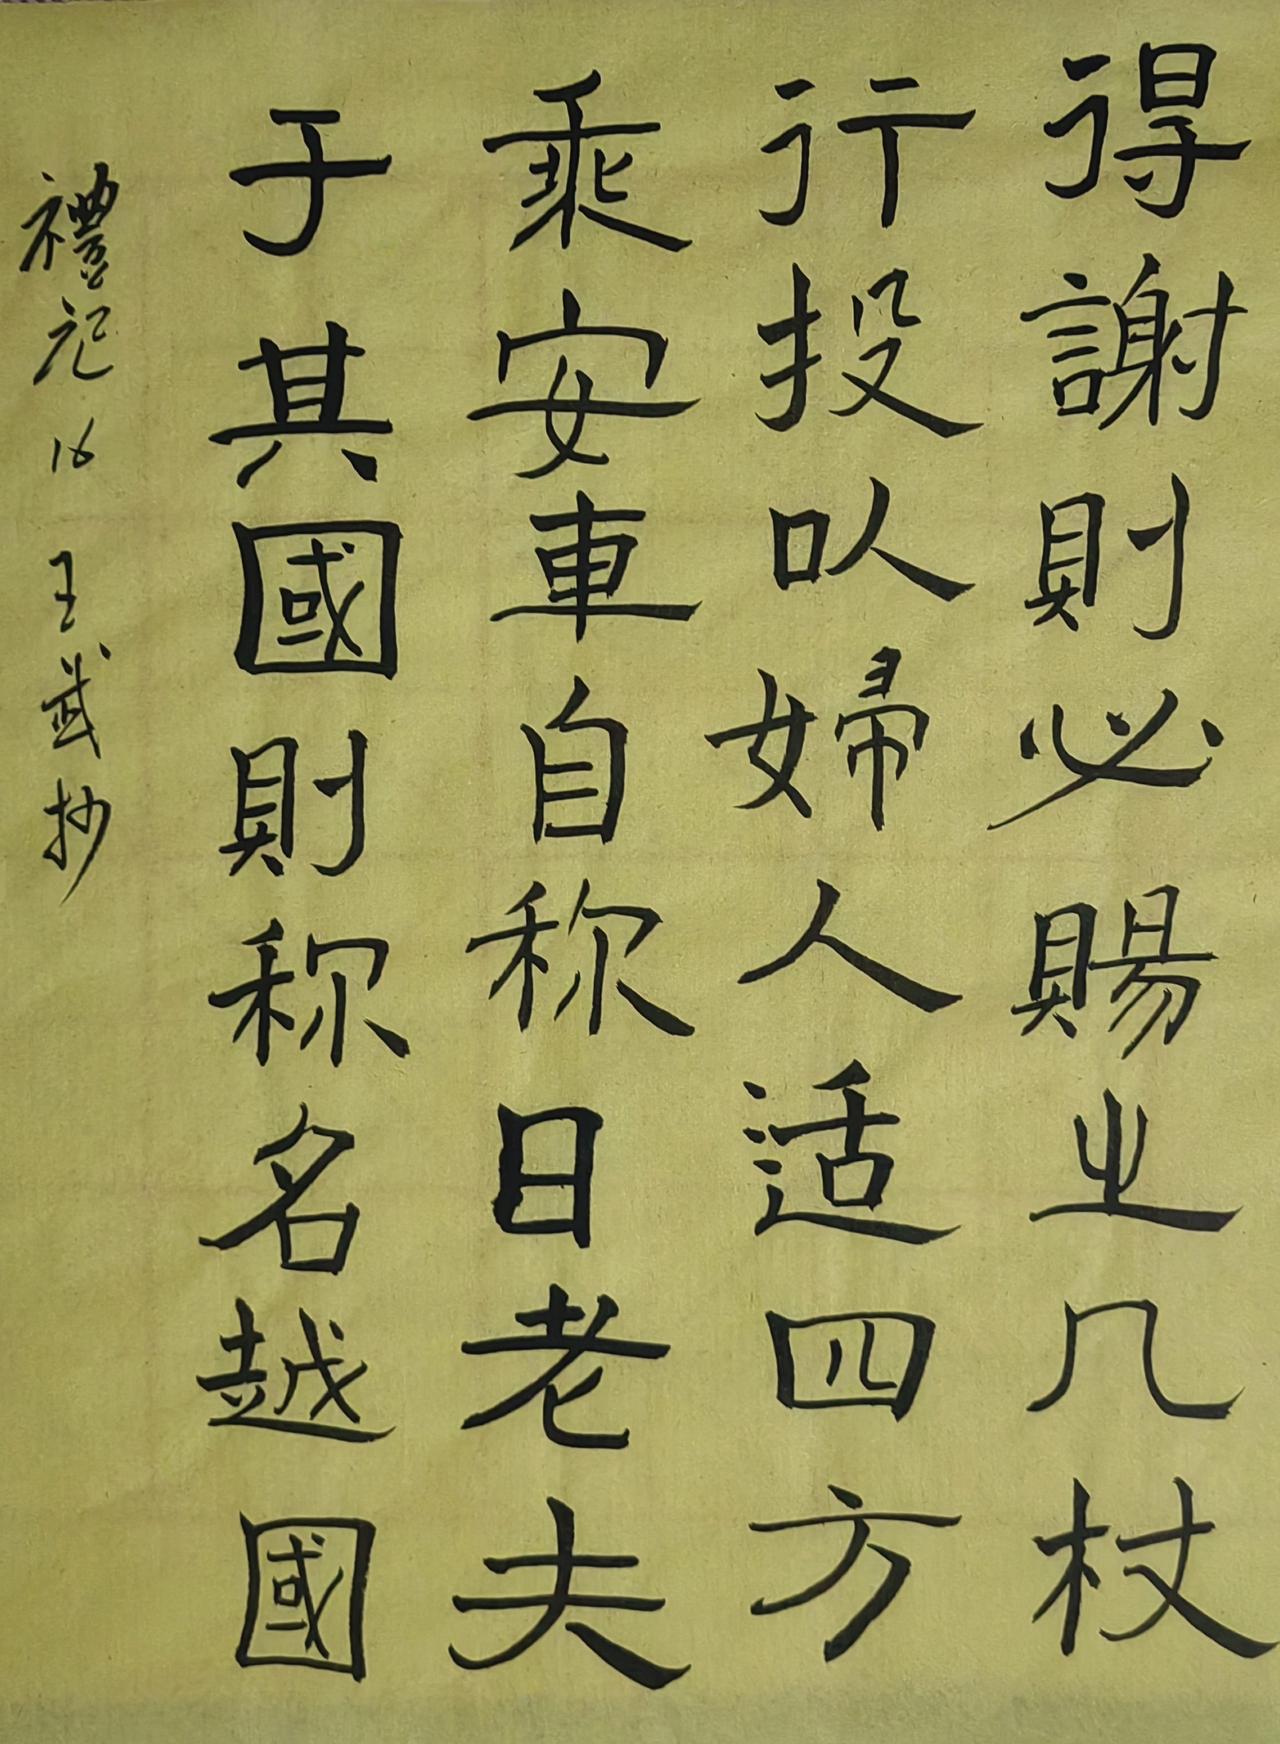 得謝則必賜之几杖
行投以婦人适四方
乘安車自称曰老夫
于其國則称名越國
禮記16 王武抄